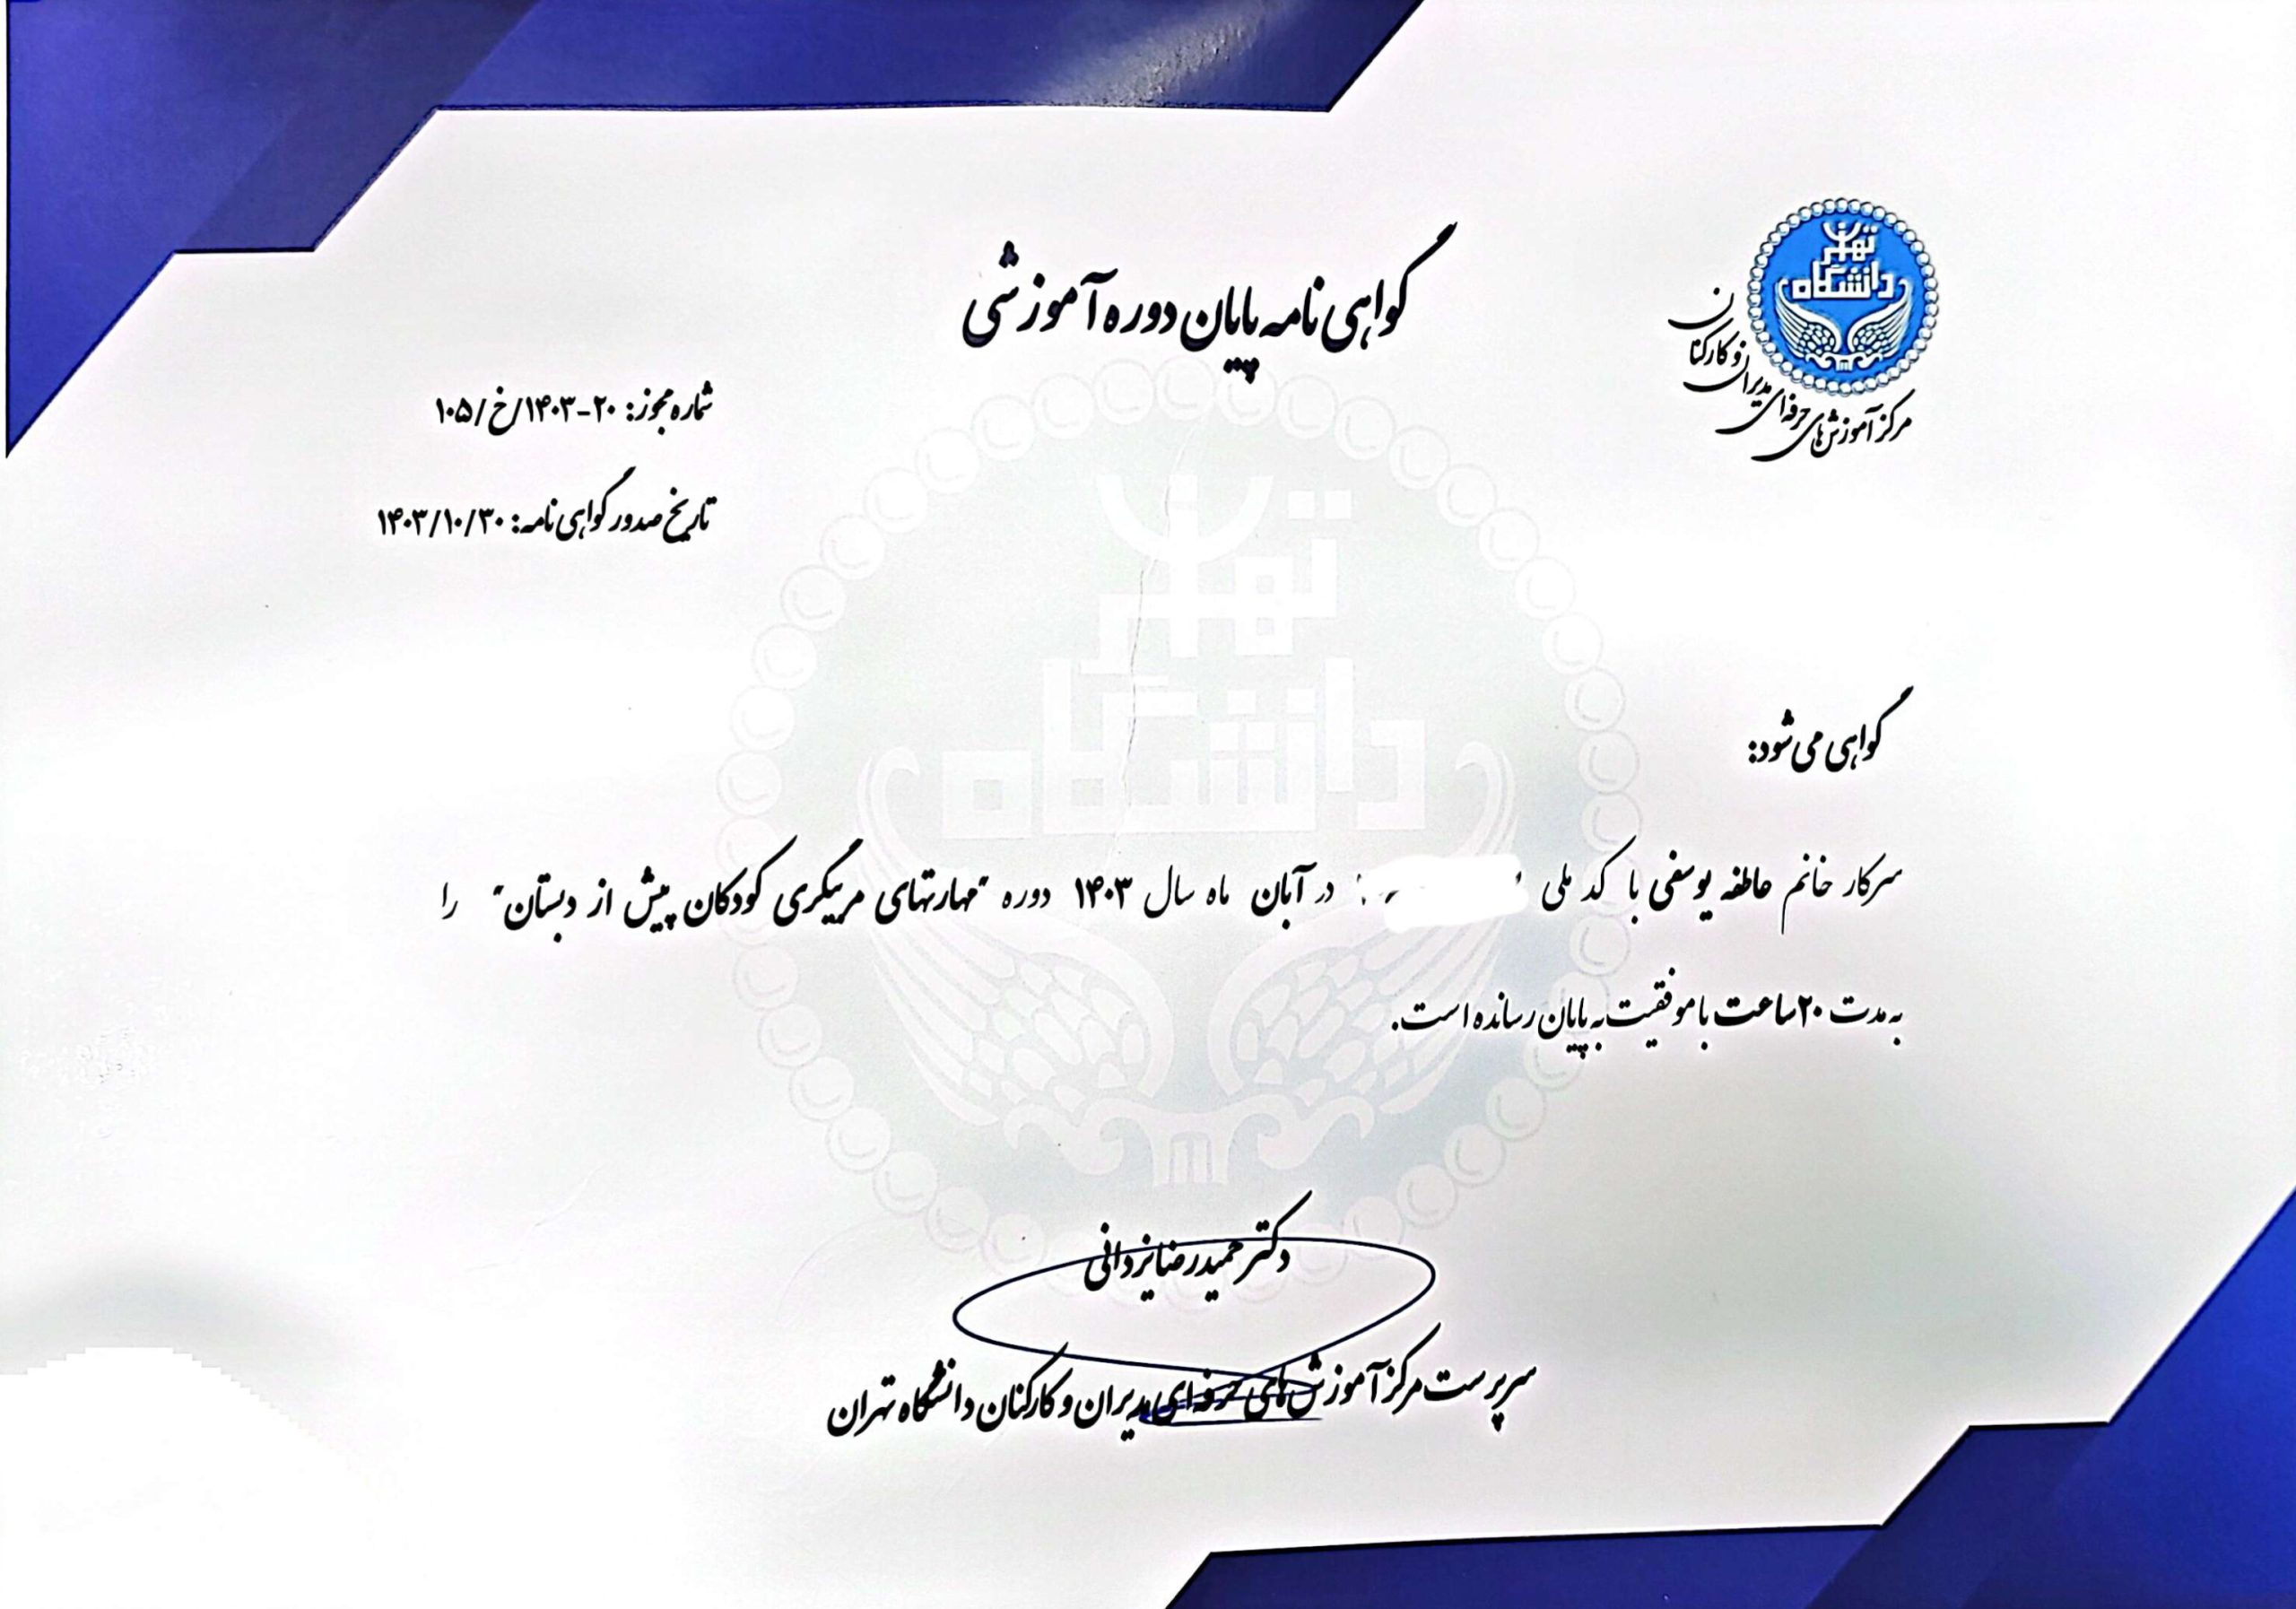 تهران
دانشگاه
مرکز آموزش‌های حرفه‌ای مدیران و کارکنان
گواهی نامه پایان دوره آموزشی
شماره مجوز: ۲۰-۱۴۰۳/خ/۱۰۵
تاریخ صدور گواهی نامه: ۱۴۰۳/۱۰/۳۰
تهران
دانشگاه
گواهی می شود:
سرکار خانم عاطفه یوسفی با کد ملی در آبان ماه سال ۱۴۰۳ دوره "مهارتهای مربیگری کودکان پیش از دبستان" را
به مدت ۲۰ ساعت با موفقیت به پایان رسانده است.
دکتر حمیدرضا یزدانی
سرپرست مرکز آموزش‌های حرفه‌ای مدیران و کارکنان دانشگاه تهران